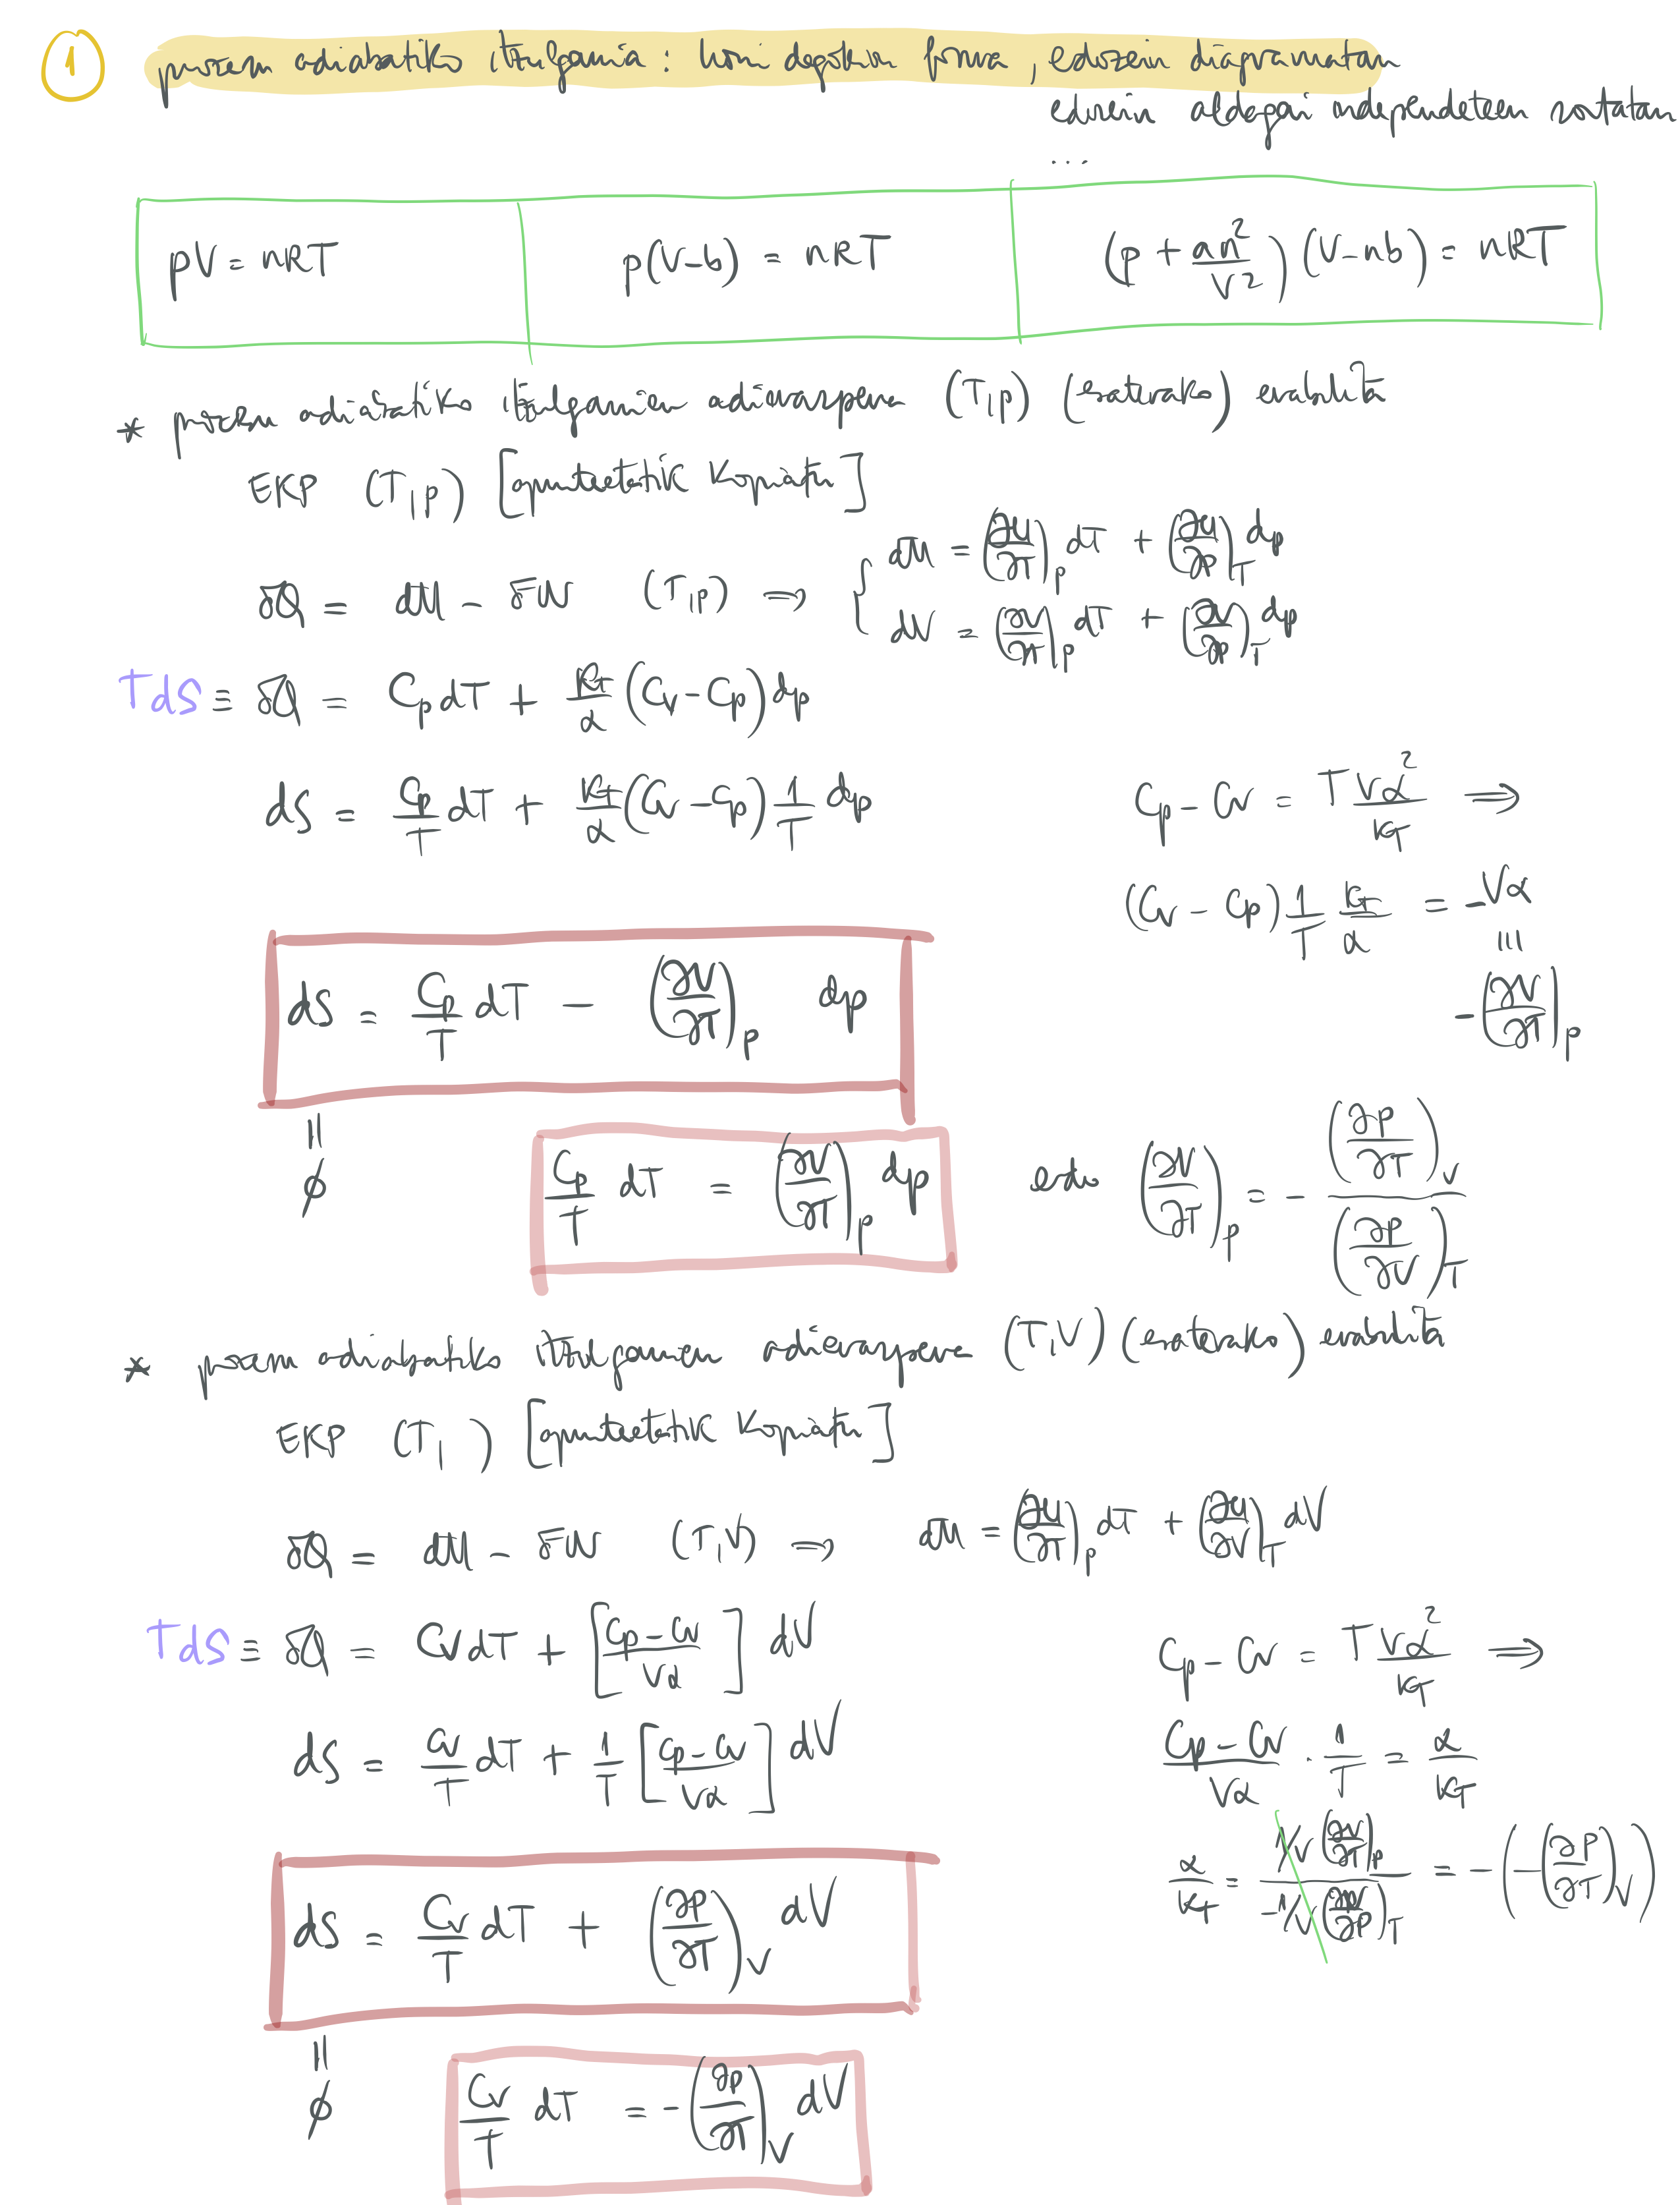 1
prozesu adiabatiko itzulgarria: honi dagokion forma, edozein diagramatan
edozein aldagai independenteen
...
pV = nRT
p(V-b) = nRT
(p + an²/V²)(V-nb) = nRT
* prozesu adiabatiko itzulgarriaren adierazpena (T,p) (esaterako) erabilita
EKP (T,p) [apunteetatik kopiatu]
δQ = dU - δW (T,p) ⇒ { dU = (∂U/∂T)_p dT + (∂U/∂p)_T dp
dV = (∂V/∂T)_p dT + (∂V/∂p)_T dp
TdS ≡ δQ = Cp dT + κT/α (Cv - Cp) dp
dS = Cp/T dT + κT/α (Cv - Cp) 1/T dp
Cp - Cv = T Vα²/κT ⇒
(Cv - Cp) 1/T κT/α = -Vα
≡
-(∂V/∂T)_p
dS = Cp/T dT - (∂V/∂T)_p dp
=
ϕ
Cp/T dT = (∂V/∂T)_p dp
edo (∂V/∂T)_p = - (∂p/∂T)_V / (∂p/∂V)_T
* prozesu adiabatiko itzulgarriaren adierazpena (T,V) (esaterako) erabilita
EKP (T, ) [apunteetatik kopiatu]
δQ = dU - δW (T,V) ⇒ dU = (∂U/∂T)_p dT + (∂U/∂V)_T dV
TdS ≡ δQ = Cv dT + [Cp - Cv / Vα] dV
Cp - Cv = T Vα²/κT ⇒
dS = Cv/T dT + 1/T [Cp - Cv / Vα] dV
Cp - Cv / Vα · 1/T = α/κT
α/κT = 1/V (∂V/∂T)_p / -1/V (∂V/∂p)_T = -(-(∂p/∂T)_V)
dS = Cv/T dT + (∂p/∂T)_V dV
=
ϕ
Cv/T dT = -(∂p/∂T)_V dV